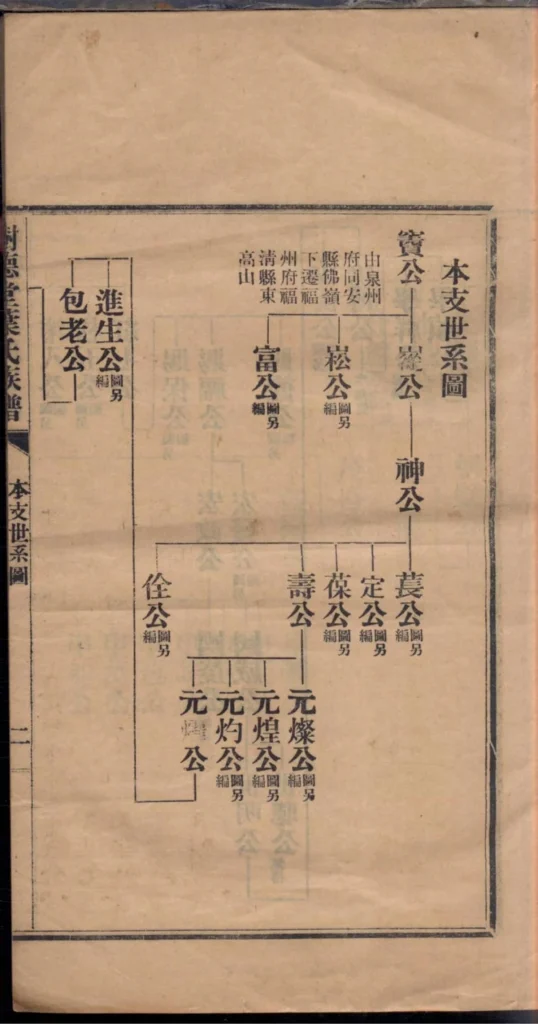 本支世系圖
寶公
由泉州
府同安
縣佛嶺
下遷福
州府福
清縣東
高山
崧公
圖另
編
富公
圖另
編
神公
萇公
圖另
編
定公
圖另
編
葆公
圖另
編
壽公
佺公
圖另
編
元燦公
圖另
編
元煌公
圖另
編
元灼公
圖另
編
元 公
進生公
圖另
編
包老公
樹德堂葉氏族譜
本支世系圖
二